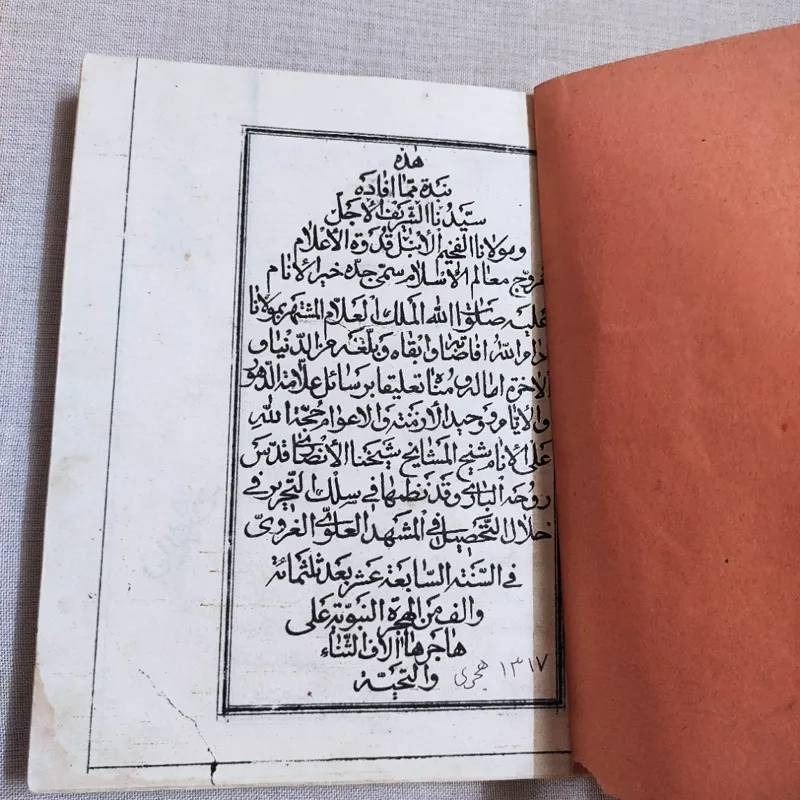 هذه
نبذة مما افاده
سيّدنا الشريف الاجل
ومولانا الفخيم الأنبل قدوة الأعلام
مروج معالم الإسلام سمى جدّه خير الأنام
عليه صلوات الله الملك العلام المشتهر بمولانا
دام الله افاضته وابقاه وبلّغه من الدنيا و
الاخرة اماله ومناه تعليقا برسائل علّامة الدهور
والايام ووحيد الأزمنة والاعوام حجة الله
على الانام شيخ المشايخ شيخنا الأنصارى قدّس
روحه البارى وقد نظمها فى سلك التحرير فى
خلال التّحصيل فى المشهد العلوى الغروىّ
فى السّنة السّابعة عشر بعد ثلثمائة
والف من الهجرة النبوّية على
هاجرها آلاف الثّناء
والتّحيّة
١٣١٧ هجرى